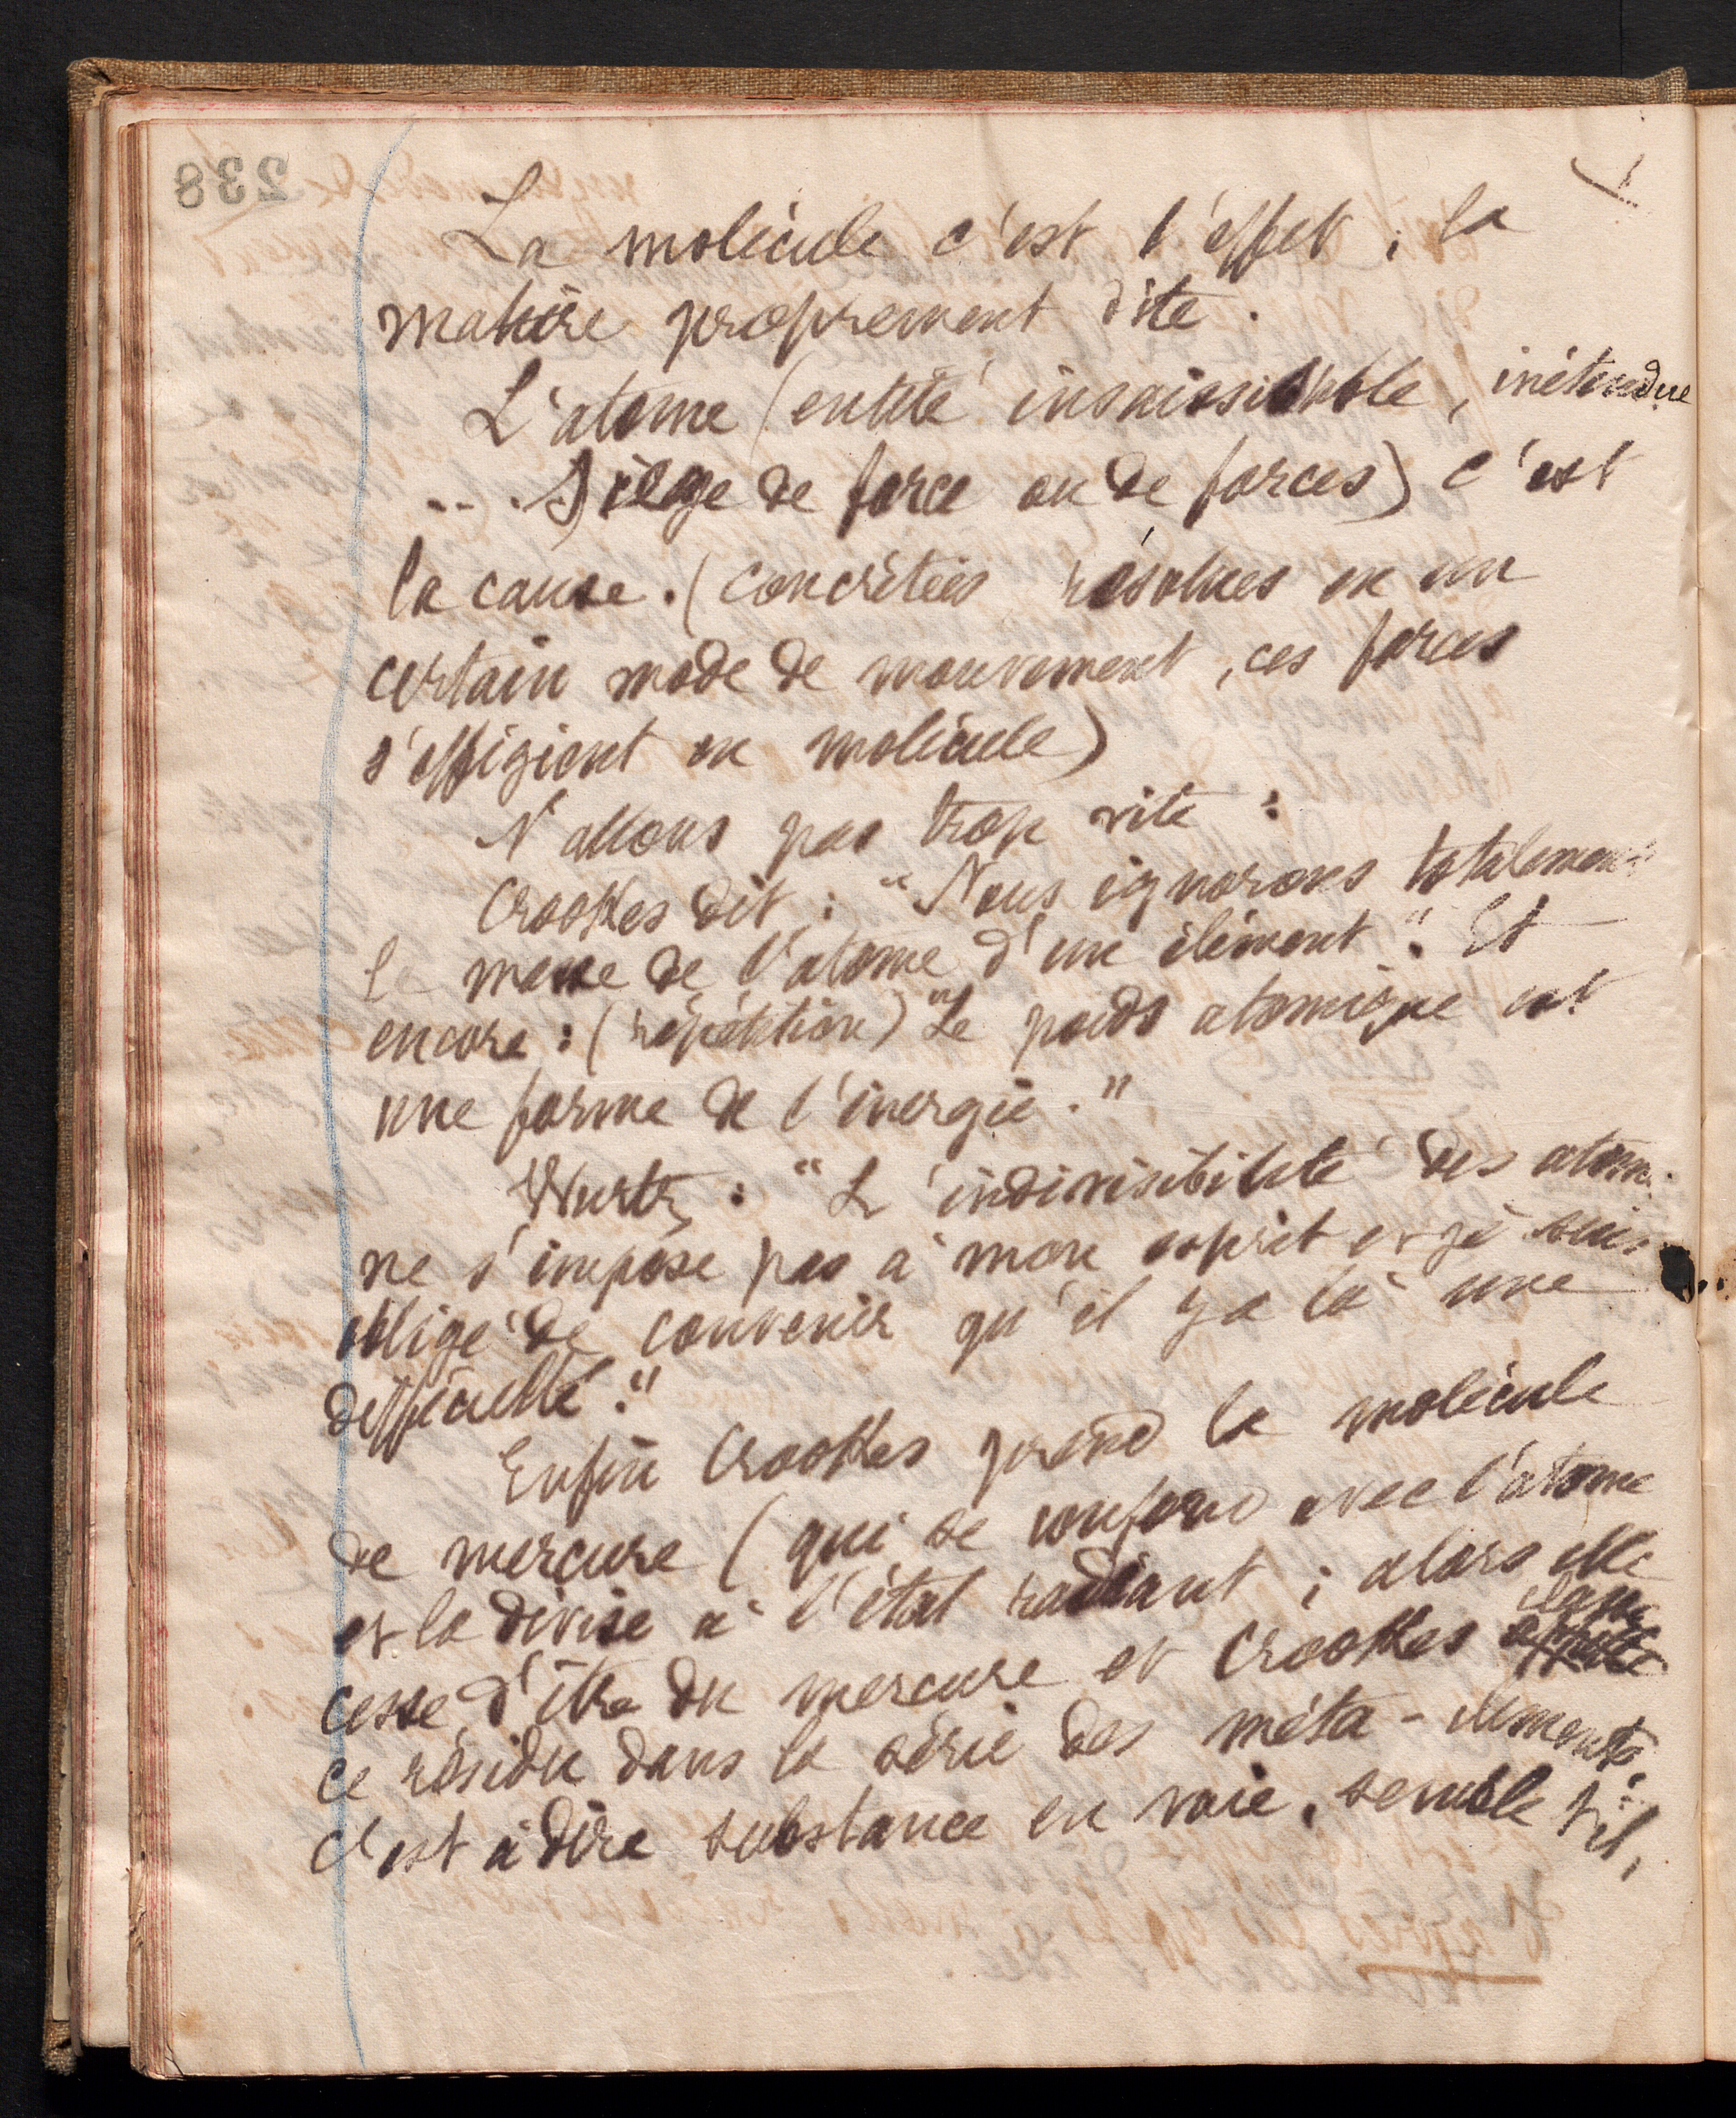 La molécule c'est l'effet ; la
matière proprement dite.
L'atome (entité insaisissable, inétendue
... Siège de force ou de forces) c'est
la cause. (concrétées résolues en un
certain mode de mouvement, ces forces
s'effigient en molécule)
N'allons pas trop vite :
Crookes dit : "Nous ignorons totalement
la masse de l'atome d'un élément". Et
encore : (répétition) "Le poids atomique est
une forme de l'énergie."
Wurtz : "L'indivisibilité des atomes
ne s'impose pas à mon esprit et je suis
obligé de convenir qu'il y a là une
difficulté."
Enfin Crookes prend la molécule
de mercure (qui se confond avec l'atome
et la divise à l'état radiant ; alors elle
cesse d'être du mercure et Crookes classe
ce résidu dans la série des méta-éléments,
c'est à dire substance en voie, semble t'il,
238